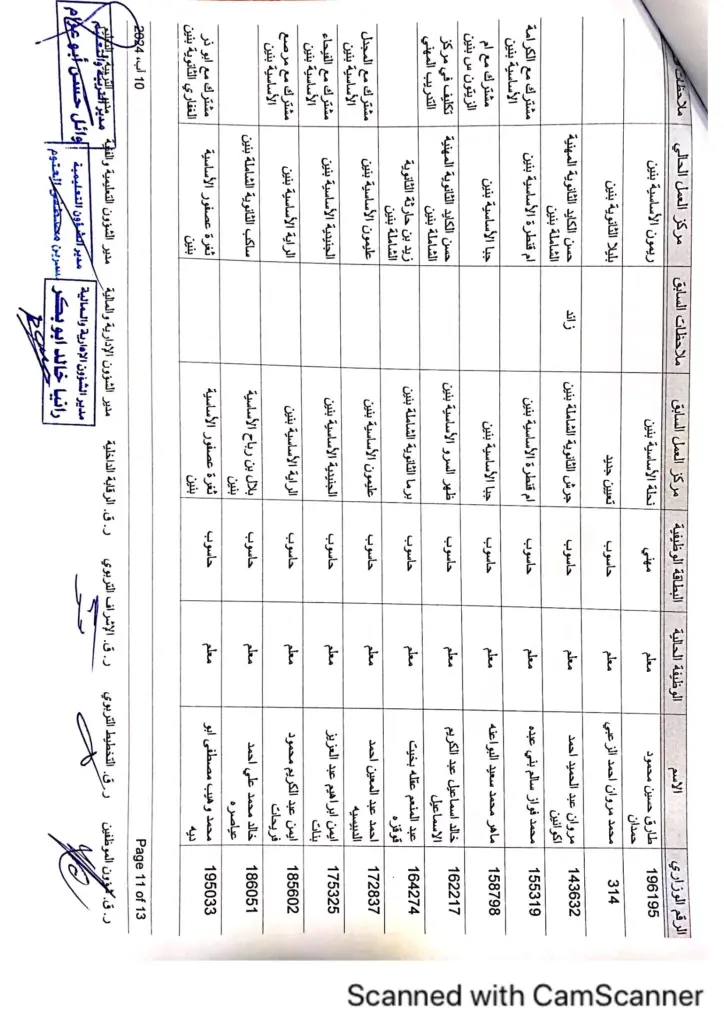 الرقم الوزاري الاسم الوظيفة الحالية البطاقة الوظيفية مركز العمل السابق ملاحظات السابق مركز العمل الحالي ملاحظات
196195 طارق حسين محمود حمدان معلم مهني نحلة الأساسية بنين ريمون الأساسية بنين
314 محمد مروان احمد الزعبي معلم حاسوب تعيين جديد بليلا الثانوية بنين
143632 مروان عبد الحميد احمد معلم حاسوب جرش الثانوية الشاملة بنين زائد حسن الكايد الثانوية المهنية الشاملة بنين
155319 محمد فواز سالم بني عبده معلم حاسوب ام قنطرة الأساسية بنين ام قنطرة الأساسية بنين مشترك مع الكرامة الأساسية بنين
158798 ماهر محمد سعيد البواعنه معلم حاسوب جبا الأساسية بنين جبا الأساسية بنين مشترك مع ام الزيتون س بنين
162217 خالد اسماعيل عبد الكريم الاسماعيل معلم حاسوب ظهر السرو الأساسية بنين حسن الكايد الثانوية المهنية الشاملة بنين تكليف في مركز التدريب المهني
164274 عبد المنعم عقله بخيت قوقزه معلم حاسوب برما الثانوية الشاملة بنين زيد بن حارثة الثانوية الشاملة بنين
172837 احمد عبد المعين احمد الدبيسيه معلم حاسوب عليمون الأساسية بنين عليمون الأساسية بنين مشترك مع المجدل الأساسية بنين
175325 ايمن ابراهيم عبد العزيز بنات معلم حاسوب الجنيدية الأساسية بنين الجنيدية الأساسية بنين مشترك مع الفيحاء الأساسية بنين
185602 ايمن عبد الكريم محمود فريحات معلم حاسوب الراية الأساسية بنين الراية الأساسية بنين مشترك مع مرصع الأساسية بنين
186051 خالد محمد علي احمد عياصره معلم حاسوب بلال بن رباح الأساسية بنين ساكب الثانوية الشاملة بنين
195033 محمد وهيب مصطفى ابو ديه معلم حاسوب ثغرة عصفور الأساسية بنين ثغرة عصفور الأساسية بنين مشترك مع ابو ذر الغفاري الثانوية بنين
Page 11 of 13 10 آب، 2024
ر.ق. شؤون الموظفين ر.ق. التخطيط التربوي ر.ق. الإشراف التربوي ر.ق. الرقابة الداخلية مدير الشؤون الإدارية والمالية مدير الشؤون التعليمية والفنية مدير التربية والتعليم
مدير الشؤون الإدارية والمالية
رانيا خالد ابو بكر
مدير الشؤون التعليمية
مدير التربية والتعليم
وائل حسن أبو عزام
Scanned with CamScanner